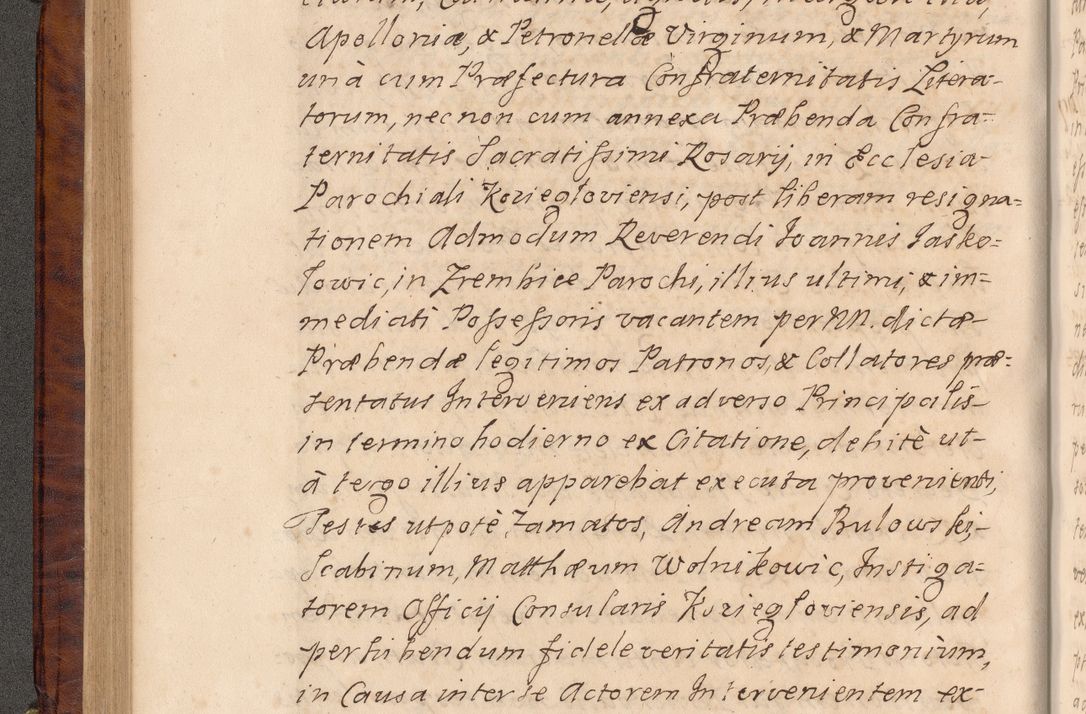 Apolloniæ, & Petronellæ Virginum, & Martyrum
unà cum Præfectura Confraternitatis Litera=
torum, nec non cum annexa Præbenda Confra=
ternitatis Sacratissimi Rosarij, in Ecclesia
Parochiali Koziegloviensi, post liberam resigna=
tionem Admodum Reverendi Joannis Jasko=
lowic, in Zrembice Parochi, illius ultimi, & im=
mediati Possessoris vacantem per NN. dictæ
Præbendæ legitimos Patronos, & Collatores præ=
sentatus Interveniens ex adverso Principalis
in termino hodierno ex Citatione, debitè ut
à tergo illius apparebat executa provenienti,
Testes utpotè Famatos, Andream Bulowski,
Scabinum, Matthæum Wolnikowic, Instiga=
torem Officij Consularis Koziegloviensis, ad
perhibendum fidele veritatis testimonium,
in Causa inter se Actorem Intervenientem ex